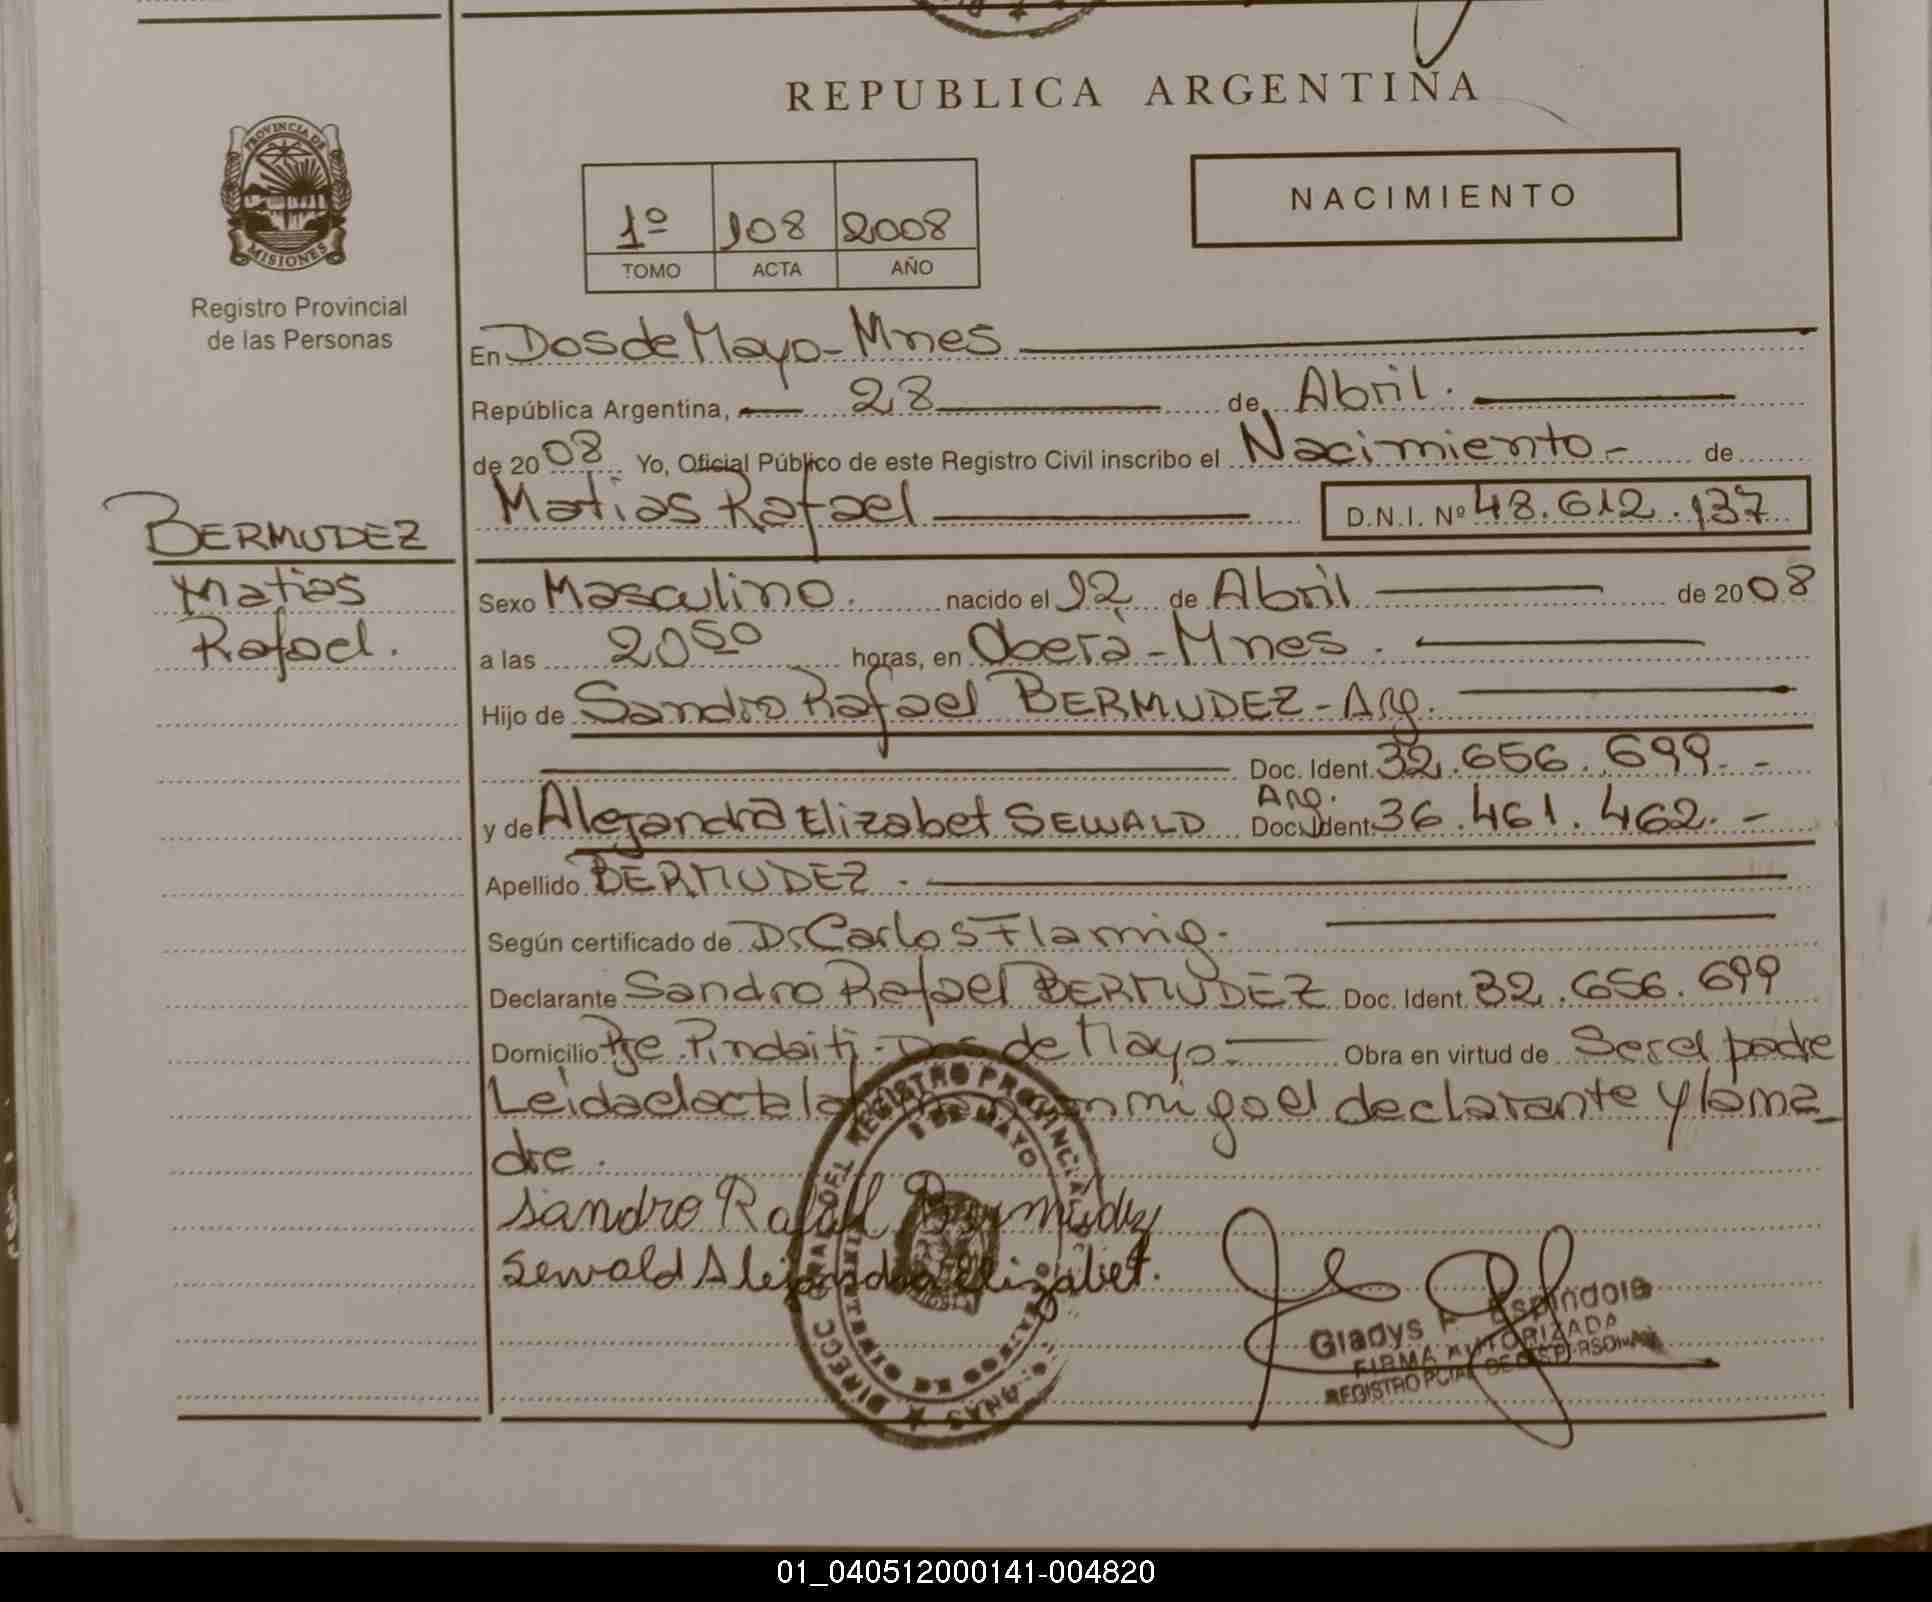 REPUBLICA ARGENTINA
PROVINCIA DE
MISIONES
Registro Provincial
de las Personas
1º 108 2008
TOMO ACTA AÑO
NACIMIENTO
En Dos de Mayo - Mnes
República Argentina, 28 de Abril.
de 2008 Yo, Oficial Público de este Registro Civil inscribo el Nacimiento - de
Matias Rafael D.N.I. Nº 48.612.137
BERMUDEZ
Matias
Rafael.
Sexo Masculino. nacido el 12 de Abril de 2008
a las 20 50 horas, en Oberá - Mnes.
Hijo de Sandro Rafael BERMUDEZ - Arg.
Doc. Ident. 32.656.699.-
y de Alejandra Elizabet SEWALD Arg. Doc. Ident. 36.461.462.-
Apellido BERMUDEZ.
Según certificado de Dr Carlos Flamig.
Declarante Sandro Rafael BERMUDEZ Doc. Ident. 32.656.699
Domicilio Pje Pindaiti - Dos de Mayo - Obra en virtud de Ser el padre
Leida el acta la conmigo el declarante y la ma-
dre.
Sandro Rafael Bermudez
Sewald Alejandra Elizabet.
DIRECC GRAL DEL REGISTRO PROVINCIAL DE LAS PERSONAS
2 DE MAYO
Gladys F. Espindola
FIRMA AUTORIZADA
REGISTRO PCIAL DE LAS PERSONAS
01_040512000141-004820